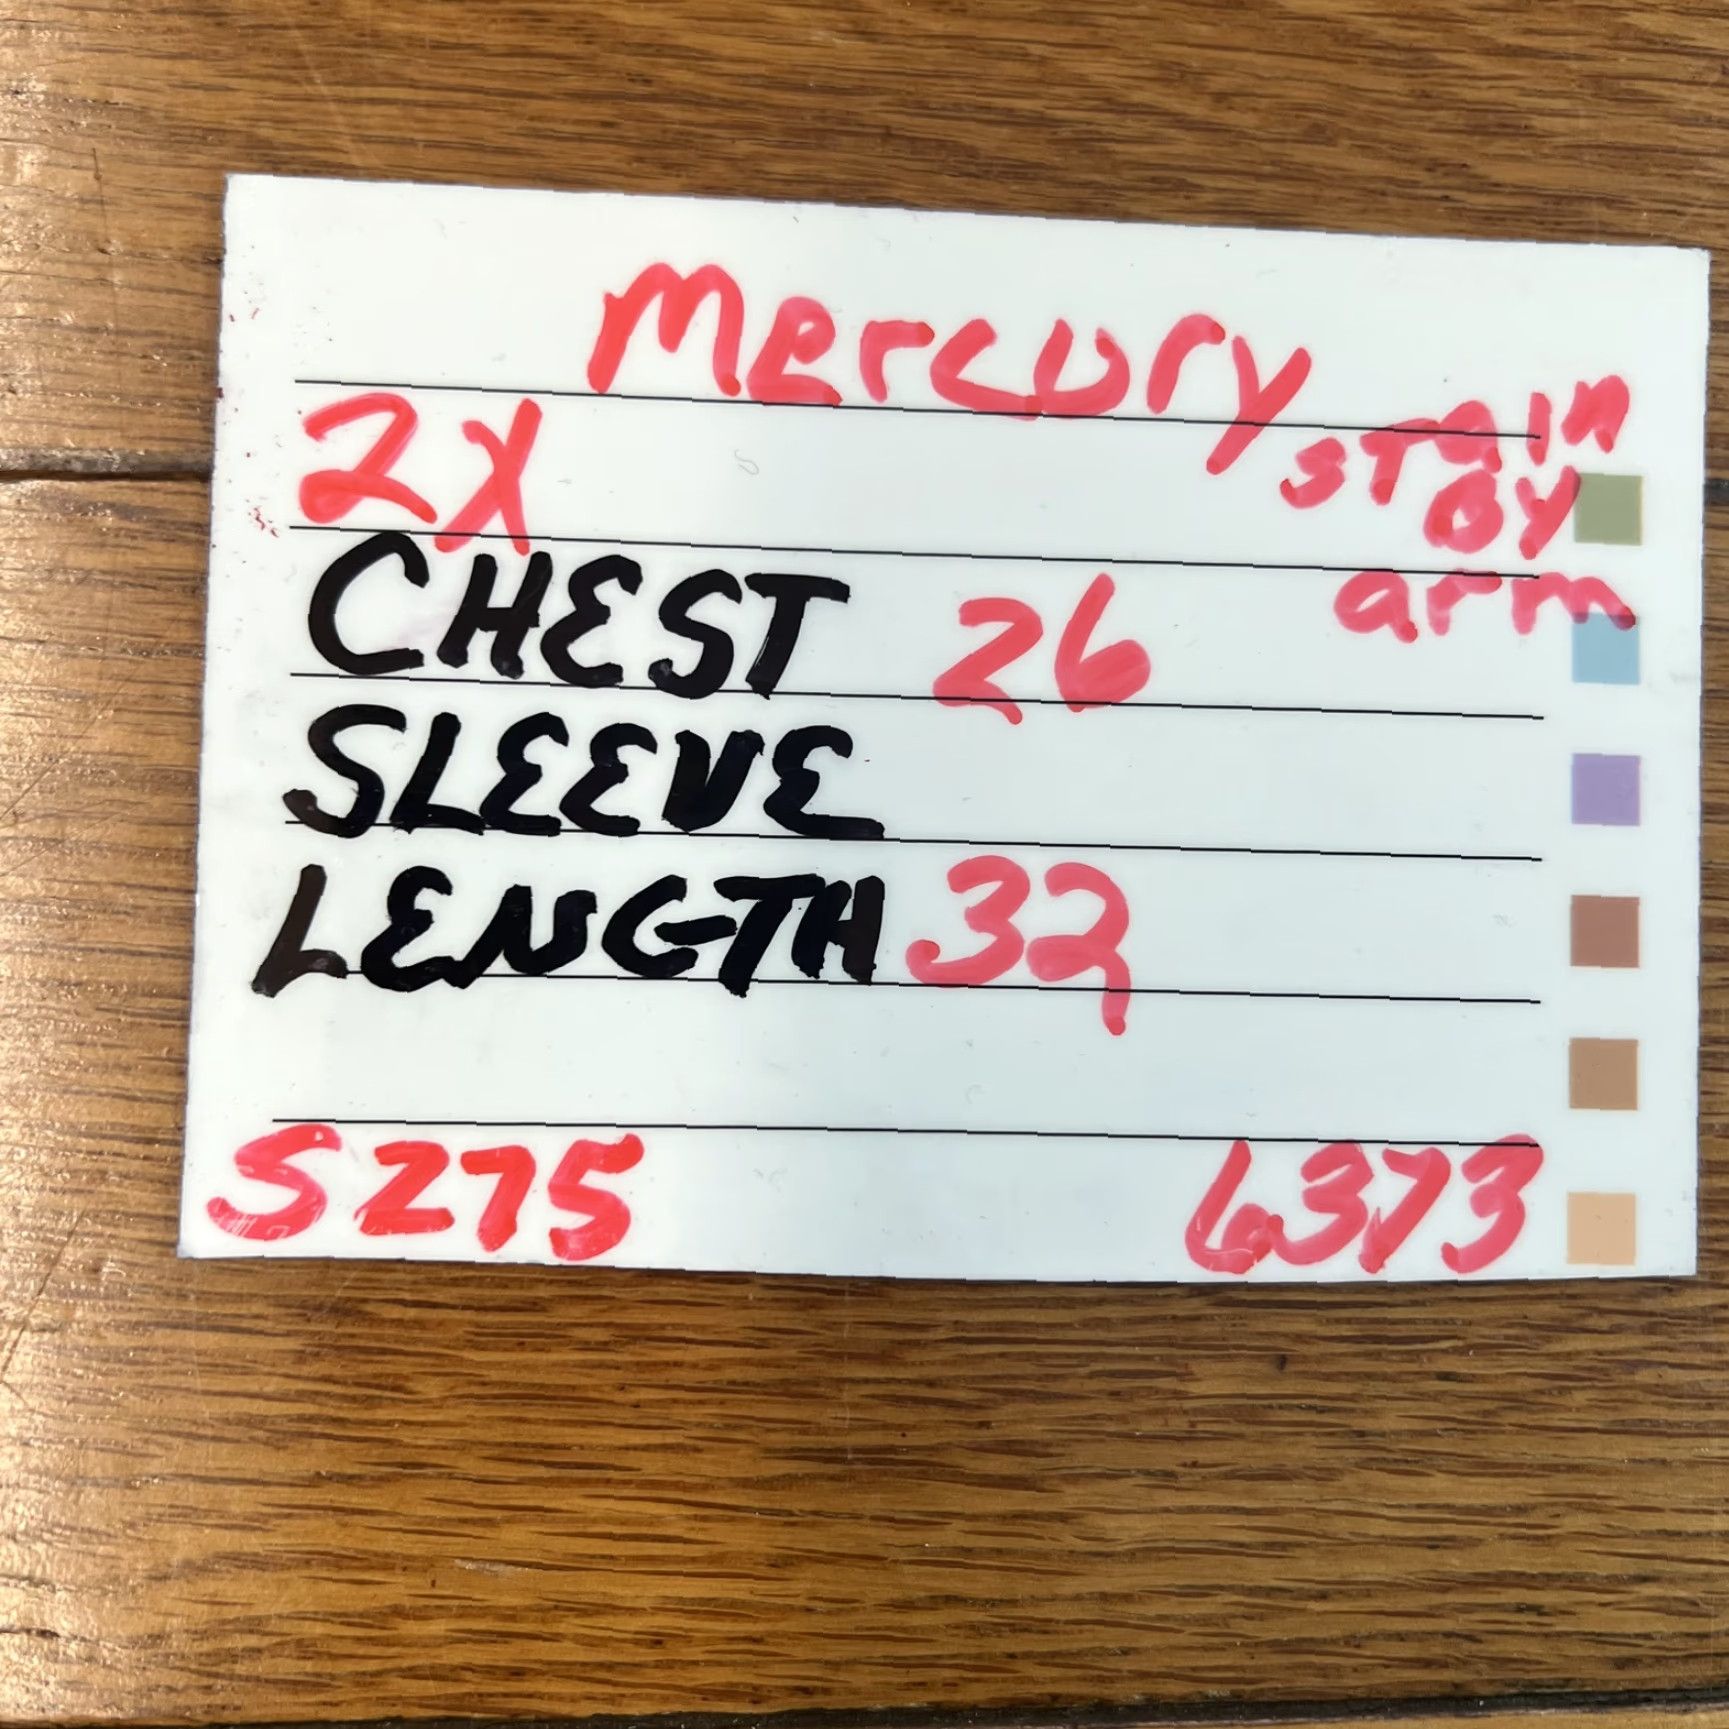 Mercury
2X
stain
by
arm
CHEST 26
SLEEVE
LENGTH 32
S275 6373